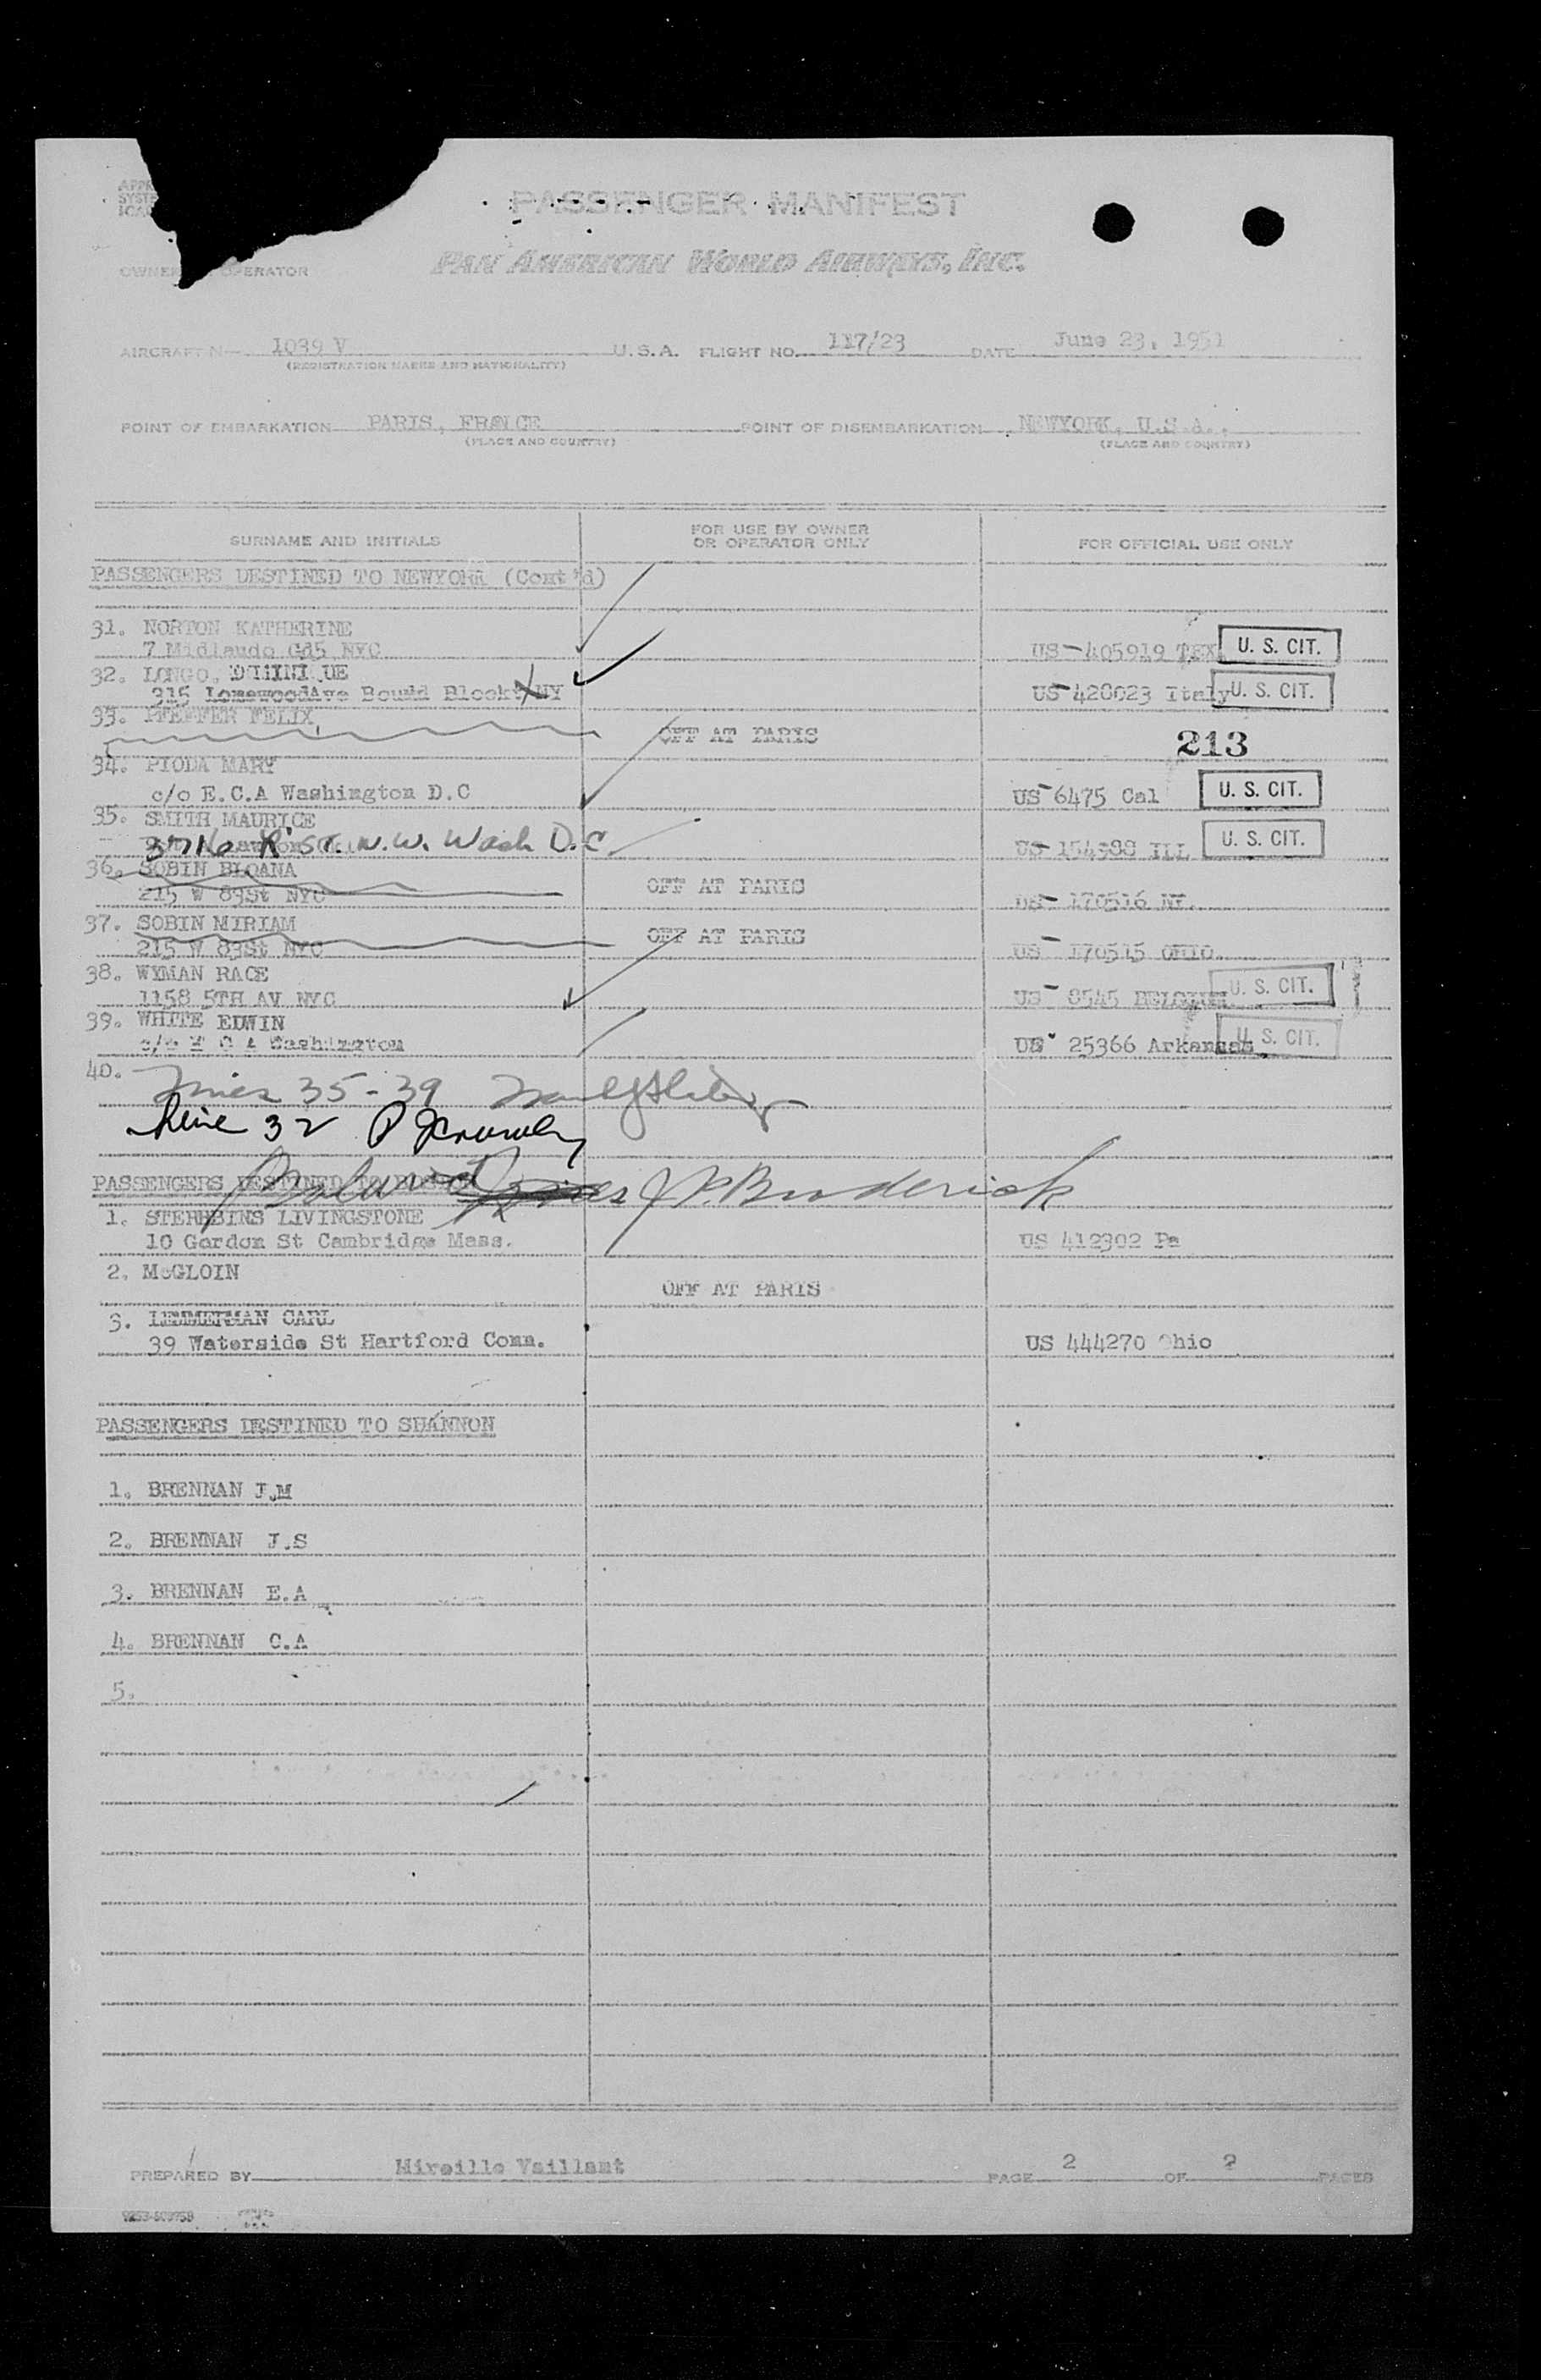 PASSENGER MANIFEST
PAN AMERICAN WORLD AIRWAYS, INC.
OPERATOR
AIRCRAFT N 1039 V U.S.A. FLIGHT NO. 117/23 DATE June 23, 1951
(REGISTRATION MARKS AND NATIONALITY)
POINT OF EMBARKATION PARIS, FRANCE POINT OF DISEMBARKATION NEWYORK, U.S.A.,
(PLACE AND COUNTRY) (PLACE AND COUNTRY)
SURNAME AND INITIALS FOR USE BY OWNER OR OPERATOR ONLY FOR OFFICIAL USE ONLY
PASSENGERS DESTINED TO NEWYORK (Cont'd)
31. NORTON KATHERINE
7 Gd5 NYC US-405919 TEX U. S. CIT.
32. LONGO,
315 NY US-420023 Italy U. S. CIT.
33. PFEFFER FELIX OFF AT PARIS 213
34. PIODA MARY
c/o E.C.A Washington D.C US-6475 Cal U. S. CIT.
35. SMITH MAURICE
3716 R ST. N.W. Wash D.C. US-154388 ILL U. S. CIT.
36. SOBIN BLOANA OFF AT PARIS
215 W 83St NYC US-170516 NY.
37. SOBIN MIRIAM OFF AT PARIS
215 W 83St NYC US-170515 OHIO
38. WYMAN RACE
1158 5TH AV NYC US-8545 BELGIUM U. S. CIT.
39. WHITE EDWIN
Washington US-25366 Arkansas U. S. CIT.
40.
35-39
Line 32 P
J.P. Broderick
PASSENGERS DESTINED TO
1. STEHHBINS LIVINGSTONE
10 Gordon St Cambridge Mass. US 412302 Pa
2. McGLOIN OFF AT PARIS
3. CARL
39 Waterside St Hartford Conn. US 444270 Ohio
PASSENGERS DESTINED TO SHANNON
1. BRENNAN J.M
2. BRENNAN J.S
3. BRENNAN E.A
4. BRENNAN C.A
5.
PREPARED BY Mireille Vaillant PAGE 2 OF 2 PAGES